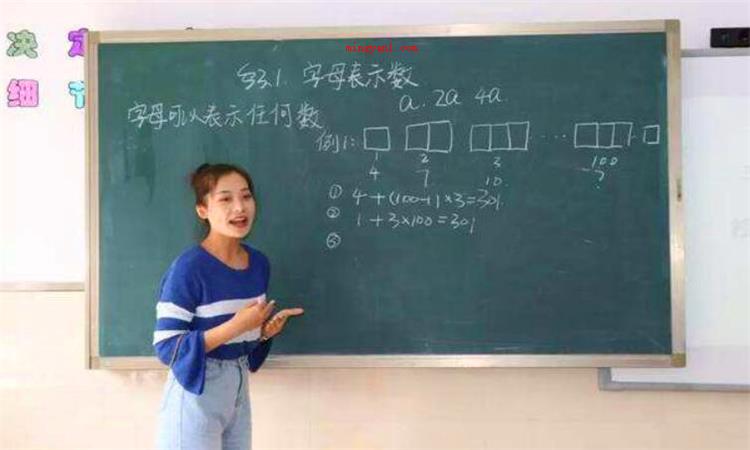 决定
细节
mingyanl.com
§3.1. 字母表示数
a. 2a 4a.
字母可以表示任何数
例1: … 
1 2 3 100
4 7 10 ?
① 4+(100-1)×3=301
② 1+3×100=301
③